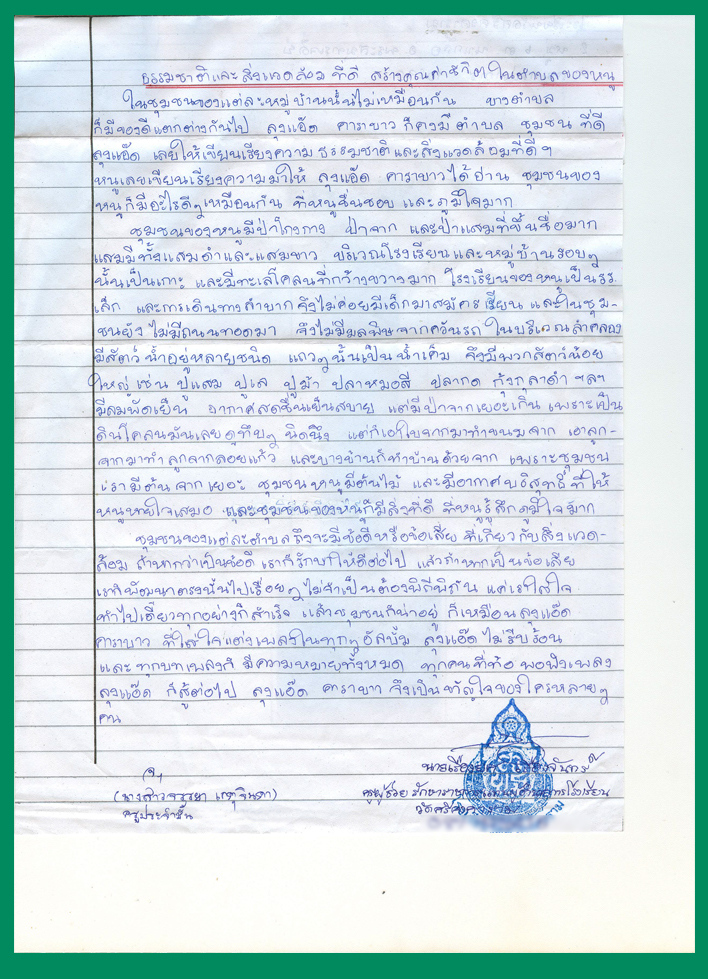 ธรรมชาติและสิ่งแวดล้อม ที่ดี สร้างคุณค่าชีวิตในตำบลของหนู
ในชุมชนของแต่ละหมู่บ้านนั้นไม่เหมือนกัน บางตำบล
ก็มีของดีแตกต่างกันไป ลุงแอ๊ด คาราบาว ก็คงมี ตำบล ชุมชน ที่ดี
ลุงแอ๊ด เลยให้เขียนเรียงความ ธรรมชาติและสิ่งแวดล้อมที่ดีฯ
หนูเลยเขียนเรียงความมาให้ ลุงแอ๊ด คาราบาวได้อ่าน ชุมชนของ
หนูก็มีอะไรดีๆเหมือนกัน ที่หนูชื่นชอบ และภูมิใจมาก
ชุมชนของหนูมีป่าโกงกาง ป่าจาก และป่าแสมที่ขึ้นชื่อมาก
แสมมีทั้งแสมดำและแสมขาว บริเวณโรงเรียนและหมู่บ้านรอบๆ
นั้นเป็นเกาะ และมีทะเลโคลนที่กว้างขวางมาก โรงเรียนของหนูเป็นรร
เล็ก และการเดินทางลำบาก จึงไม่ค่อยมีเด็กมาสมัครเรียน และในชุม-
ชนยัง ไม่มีถนนทอดมา จึงไม่มีมลพิษจากควันรถ ในบริเวณลำคลอง
มีสัตว์น้ำอยู่หลายชนิด แถวๆนั้นเป็นน้ำเค็ม จึงมีพวกสัตว์น้อย
ใหญ่ เช่น ปูแสม ปูเล ปูม้า ปลาหมอสี ปลากด กุ้งกุลาดำ ฯลฯ
มีลมพัดเย็น อากาศสดชื่นเย็นสบาย แต่มีป่าจากเยอะเกิน เพราะเป็น
ดินโคลนมันเลยดูทึบๆ นิดนึง แต่ก็เอาใบจากมาทำขนมจาก เอาลูก-
จากมาทำ ลูกจากลอยแก้ว และบางบ้านก็ทำบ้านด้วยจาก เพราะชุมชน
เรามีต้นจากเยอะ ชุมชนหนูมีต้นไม้ และมีอากาศบริสุทธิ์ ที่ให้
หนูหายใจเสมอ และชุมชนของหนูก็มีสิ่งที่ดี ที่หนูรู้สึกภูมิใจมาก
ชุมชนของแต่ละตำบลถึงจะมีข้อดีหรือข้อเสีย ที่เกี่ยวกับสิ่งแวด-
ล้อม ถ้าหากว่าเป็นข้อดี เราก็รักษาให้ดีต่อไป แล้วถ้าหากเป็นข้อเสีย
เราก็พัฒนาตรงนั้นไปเรื่อยๆ ไม่จำเป็นต้องพิถีพิถัน แค่เราใส่ใจ
ทำไปเดี๋ยวทุกอย่างก็สำเร็จ แล้วชุมชนก็น่าอยู่ ก็เหมือนลุงแอ๊ด
คาราบาว ที่ใส่ใจแต่งเพลงในทุกๆอัลบั้ม ลุงแอ๊ดไม่รีบร้อน
และ ทุกบทเพลงก็ มีความหมายทั้งหมด ทุกคนที่ท้อ พอฟังเพลง
ลุงแอ๊ด ก็สู้ต่อไป ลุงแอ๊ด คาราบาว จึงเป็นขวัญใจของใครหลายๆ
คน
ครูผู้ช่วย
(นางสาว
ครูประจำชั้น